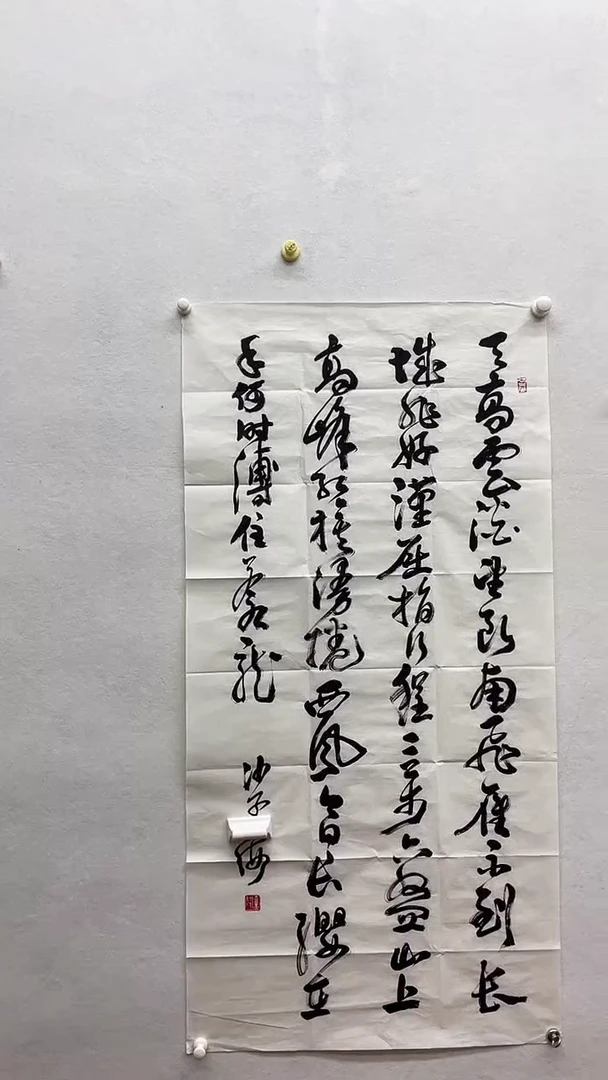 天高雲淡望断南飛雁不到长
城非好漢屈指行程二万六盤山上
高峰红旗漫捲西風今日长纓在
手何时縛住蒼龍
沙子